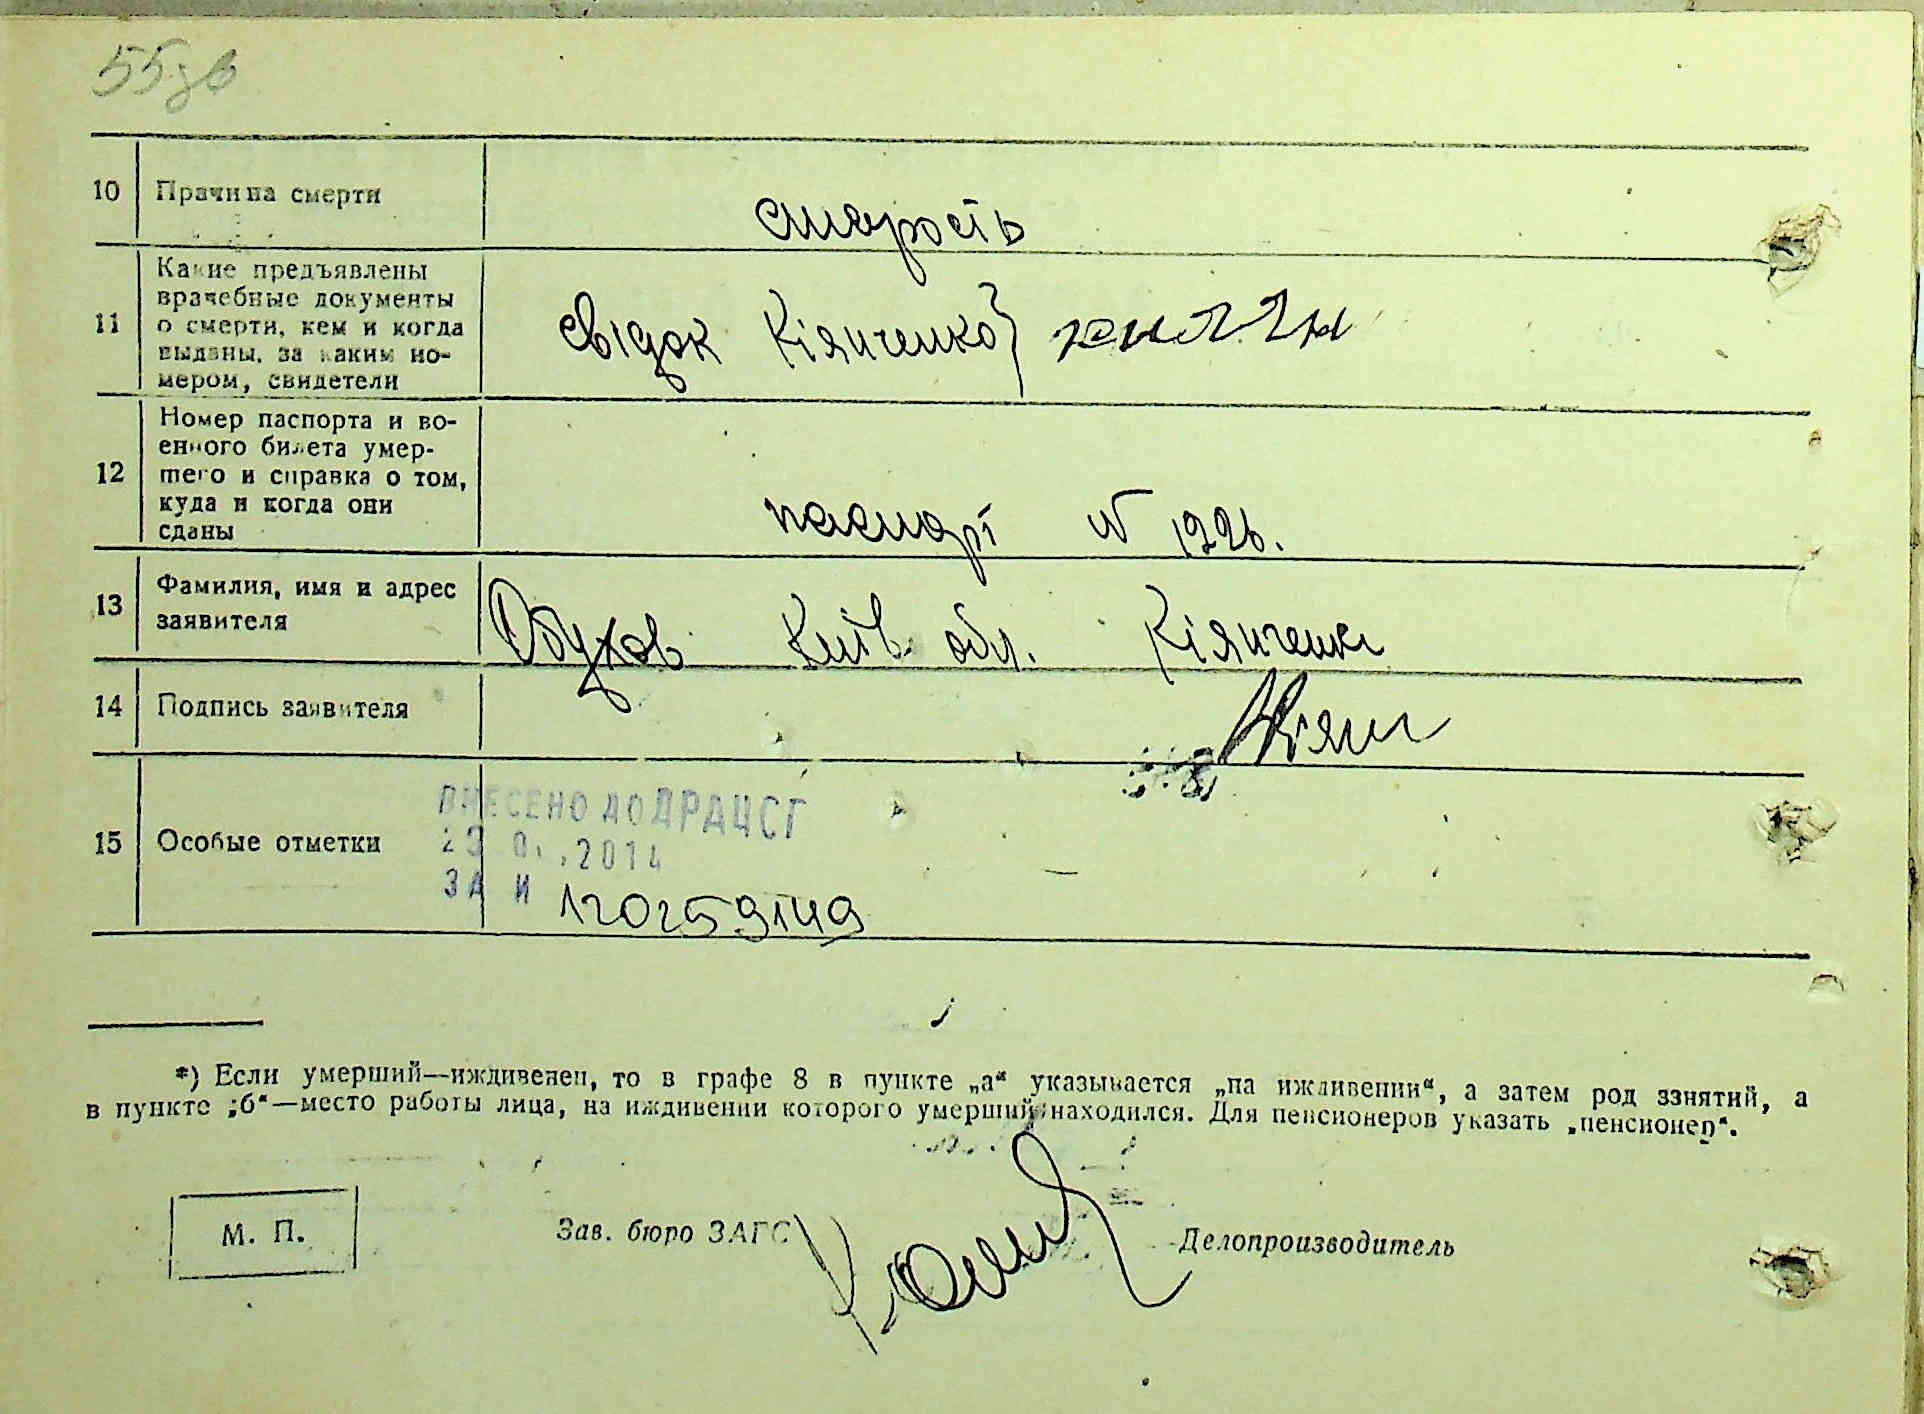 55зв
10 Причина смерти
старость
11 Какие предъявлены
врачебные документы
о смерти, кем и когда
выданы, за каким но-
мером, свидетели
свідок Кіянченко}
12 Номер паспорта и во-
енного билета умер-
шего и справка о том,
куда и когда они
сданы
паспорт № 1226.
13 Фамилия, имя и адрес
заявителя
Обухов Київ. обл. Кіянченко
14 Подпись заявителя
Кіянч
15 Особые отметки
ВНЕСЕНО ДО ДРАЦСГ
2014
ЗА
*) Если умерший—иждивенец, то в графе 8 в пункте „а“ указывается „на иждивении“, а затем род занятий, а
в пункте „б“—место работы лица, на иждивении которого умерший находился. Для пенсионеров указать „пенсионер“.
М. П.
Зав. бюро ЗАГС
Делопроизводитель